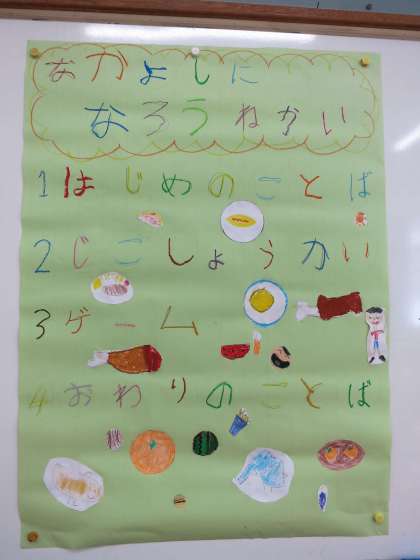 なかよしに
なろうねかい
1はじめのことば
2じこしょうかい
3ゲーム
4おわりのことば